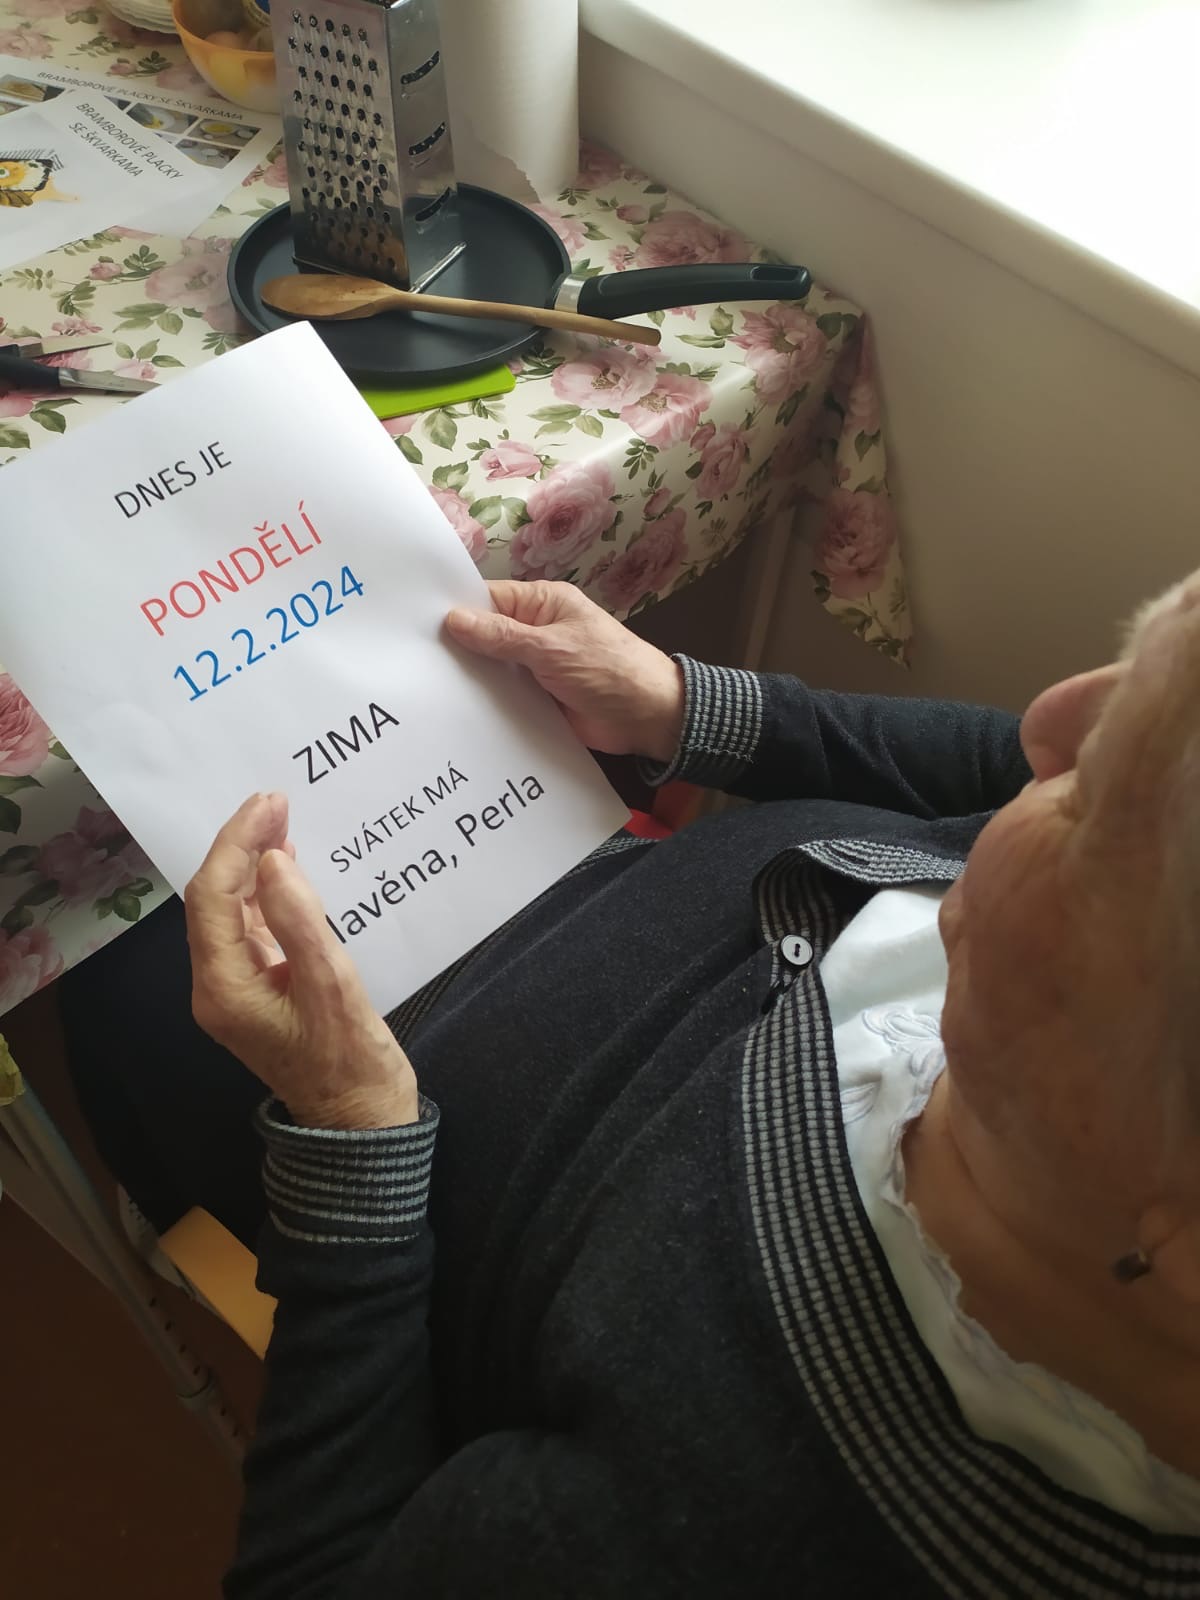 BRAMBOROVÉ PLACKY SE ŠKVARKAMA
BRAMBOROVÉ PLACKY
SE ŠKVARKAMA
DNES JE
PONDĚLÍ
12.2.2024
ZIMA
SVÁTEK MÁ
lavěna, Perla